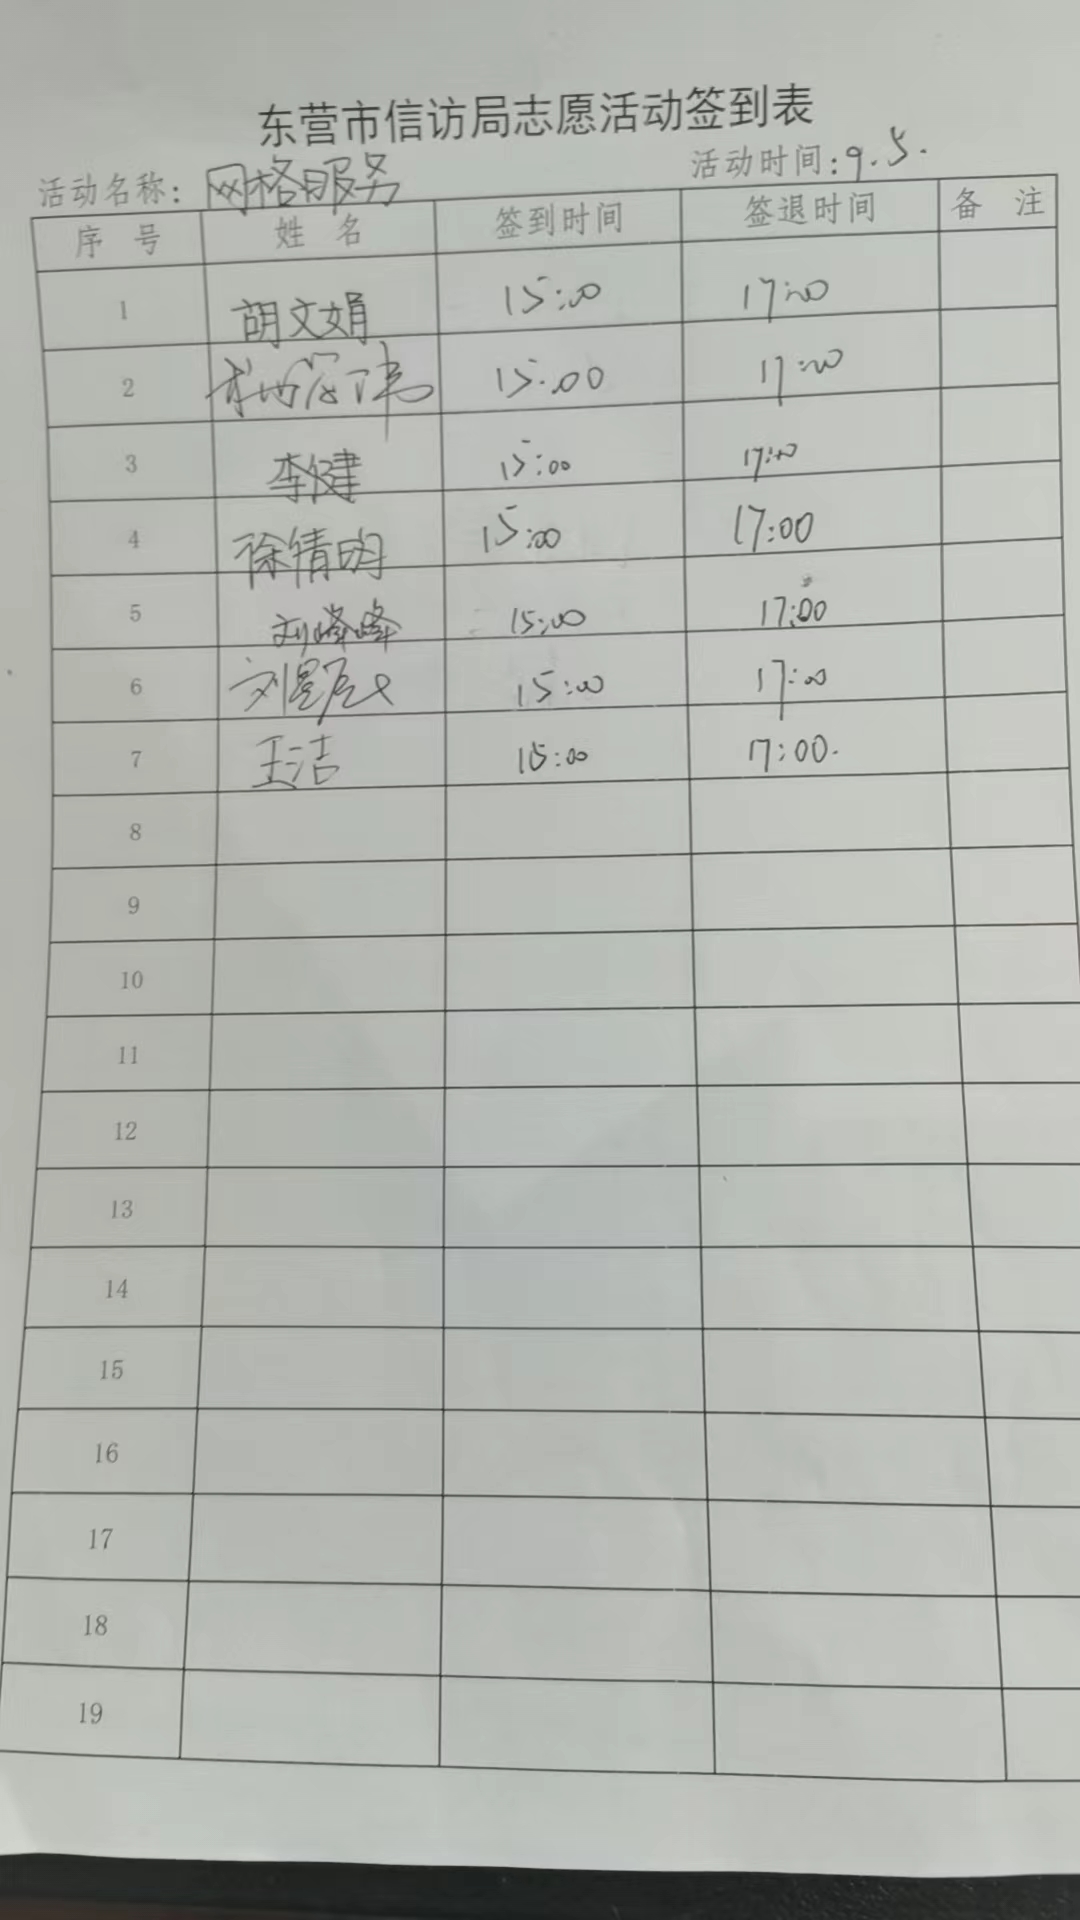 东营市信访局志愿活动签到表
活动名称：网格服务 活动时间：9.5.
序 号 姓 名 签到时间 签退时间 备 注
1 胡文娟 15:00 17:00
2 15:00 17:00
3 李健 15:00 17:00
4 徐倩明 15:00 17:00
5 刘峰峰 15:00 17:00
6 刘 15:00 17:00
7 王洁 15:00 17:00.
8
9
10
11
12
13
14
15
16
17
18
19